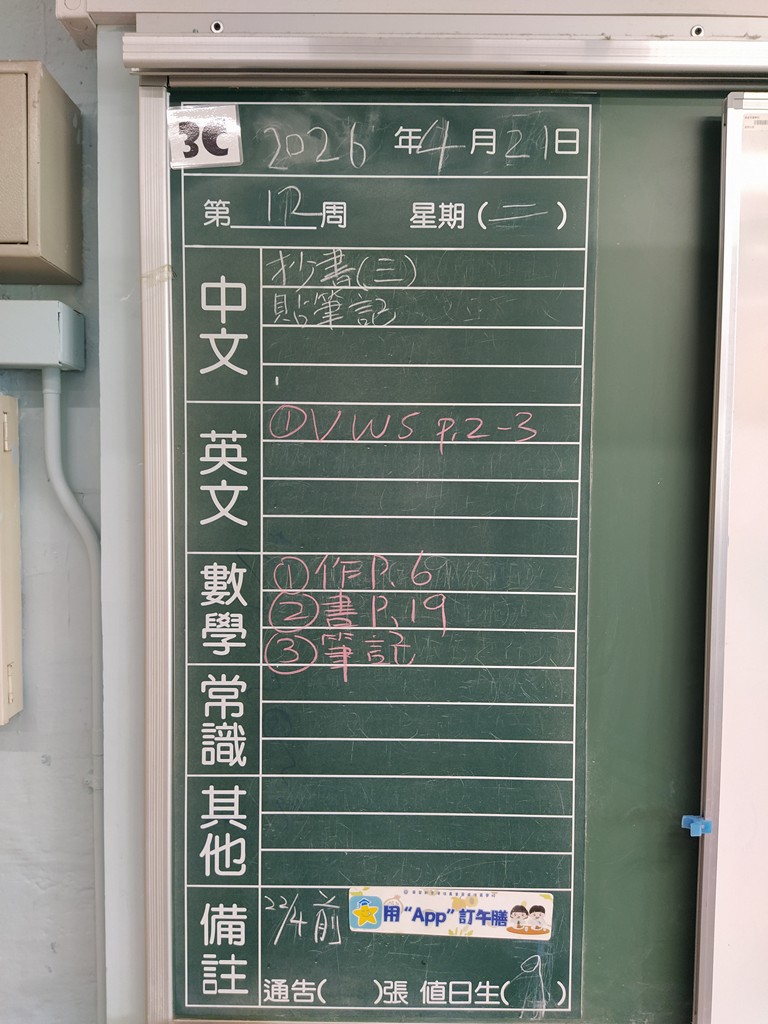 3C 2026 年 4 月 21 日
第 12 周 星期 (二)
中文
抄書(三)
貼筆記
英文
① VWS p.2-3
數學
① 作 P. 6
② 書 P. 19
③ 筆記
常識
其他
備註
22/4 前
用 “App” 訂午膳
通告( )張 值日生( 9 )